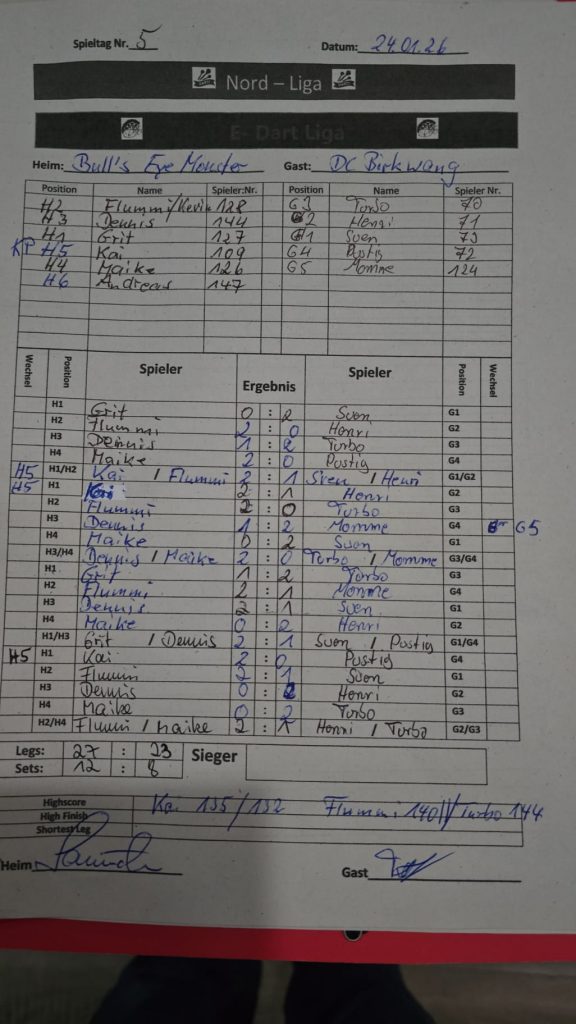 Spieltag Nr. 5 Datum: 24.01.26
Nord – Liga
E- Dart Liga
Heim: Bull's Eye Monster Gast: DC Birkwang
Position Name Spieler:Nr. Position Name Spieler Nr.
H2 Flummi/Kevin 128 G3 Turbo 70
H3 Dennis 144 G2 Henri 71
H1 Grit 127 G1 Sven 73
KP H5 Kai 109 G4 Postig 72
H4 Maike 126 G5 Momme 124
H6 Andreas 147
Wechsel Position Spieler Ergebnis Spieler Position Wechsel
H1 Grit 0 : 2 Sven G1
H2 Flummi 2 : 0 Henri G2
H3 Dennis 1 : 2 Turbo G3
H4 Maike 2 : 0 Postig G4
H5 H1/H2 Kai / Flummi 2 : 1 Sven / Henri G1/G2
H5 H1 Kai 2 : 1 Henri G2
H2 Flummi 2 : 0 Turbo G3
H3 Dennis 1 : 2 Momme G4 G5
H4 Maike 0 : 2 Sven G1
H3/H4 Dennis / Maike 2 : 0 Turbo / Momme G3/G4
H1 Grit 1 : 2 Turbo G3
H2 Flummi 2 : 1 Momme G4
H3 Dennis 2 : 1 Sven G1
H4 Maike 0 : 2 Henri G2
H1/H3 Grit / Dennis 2 : 1 Sven / Postig G1/G4
H5 H1 Kai 2 : 0 Postig G4
H2 Flummi 2 : 1 Sven G1
H3 Dennis 0 : 2 Henri G2
H4 Maike 0 : 2 Turbo G3
H2/H4 Flummi / Maike 2 : 1 Henri / Turbo G2/G3
Legs: 27 : 23 Sieger
Sets: 12 : 8
Highscore Kai 135/132 Flummi 140 // Turbo 144
High Finish
Shortest Leg
Heim Gast